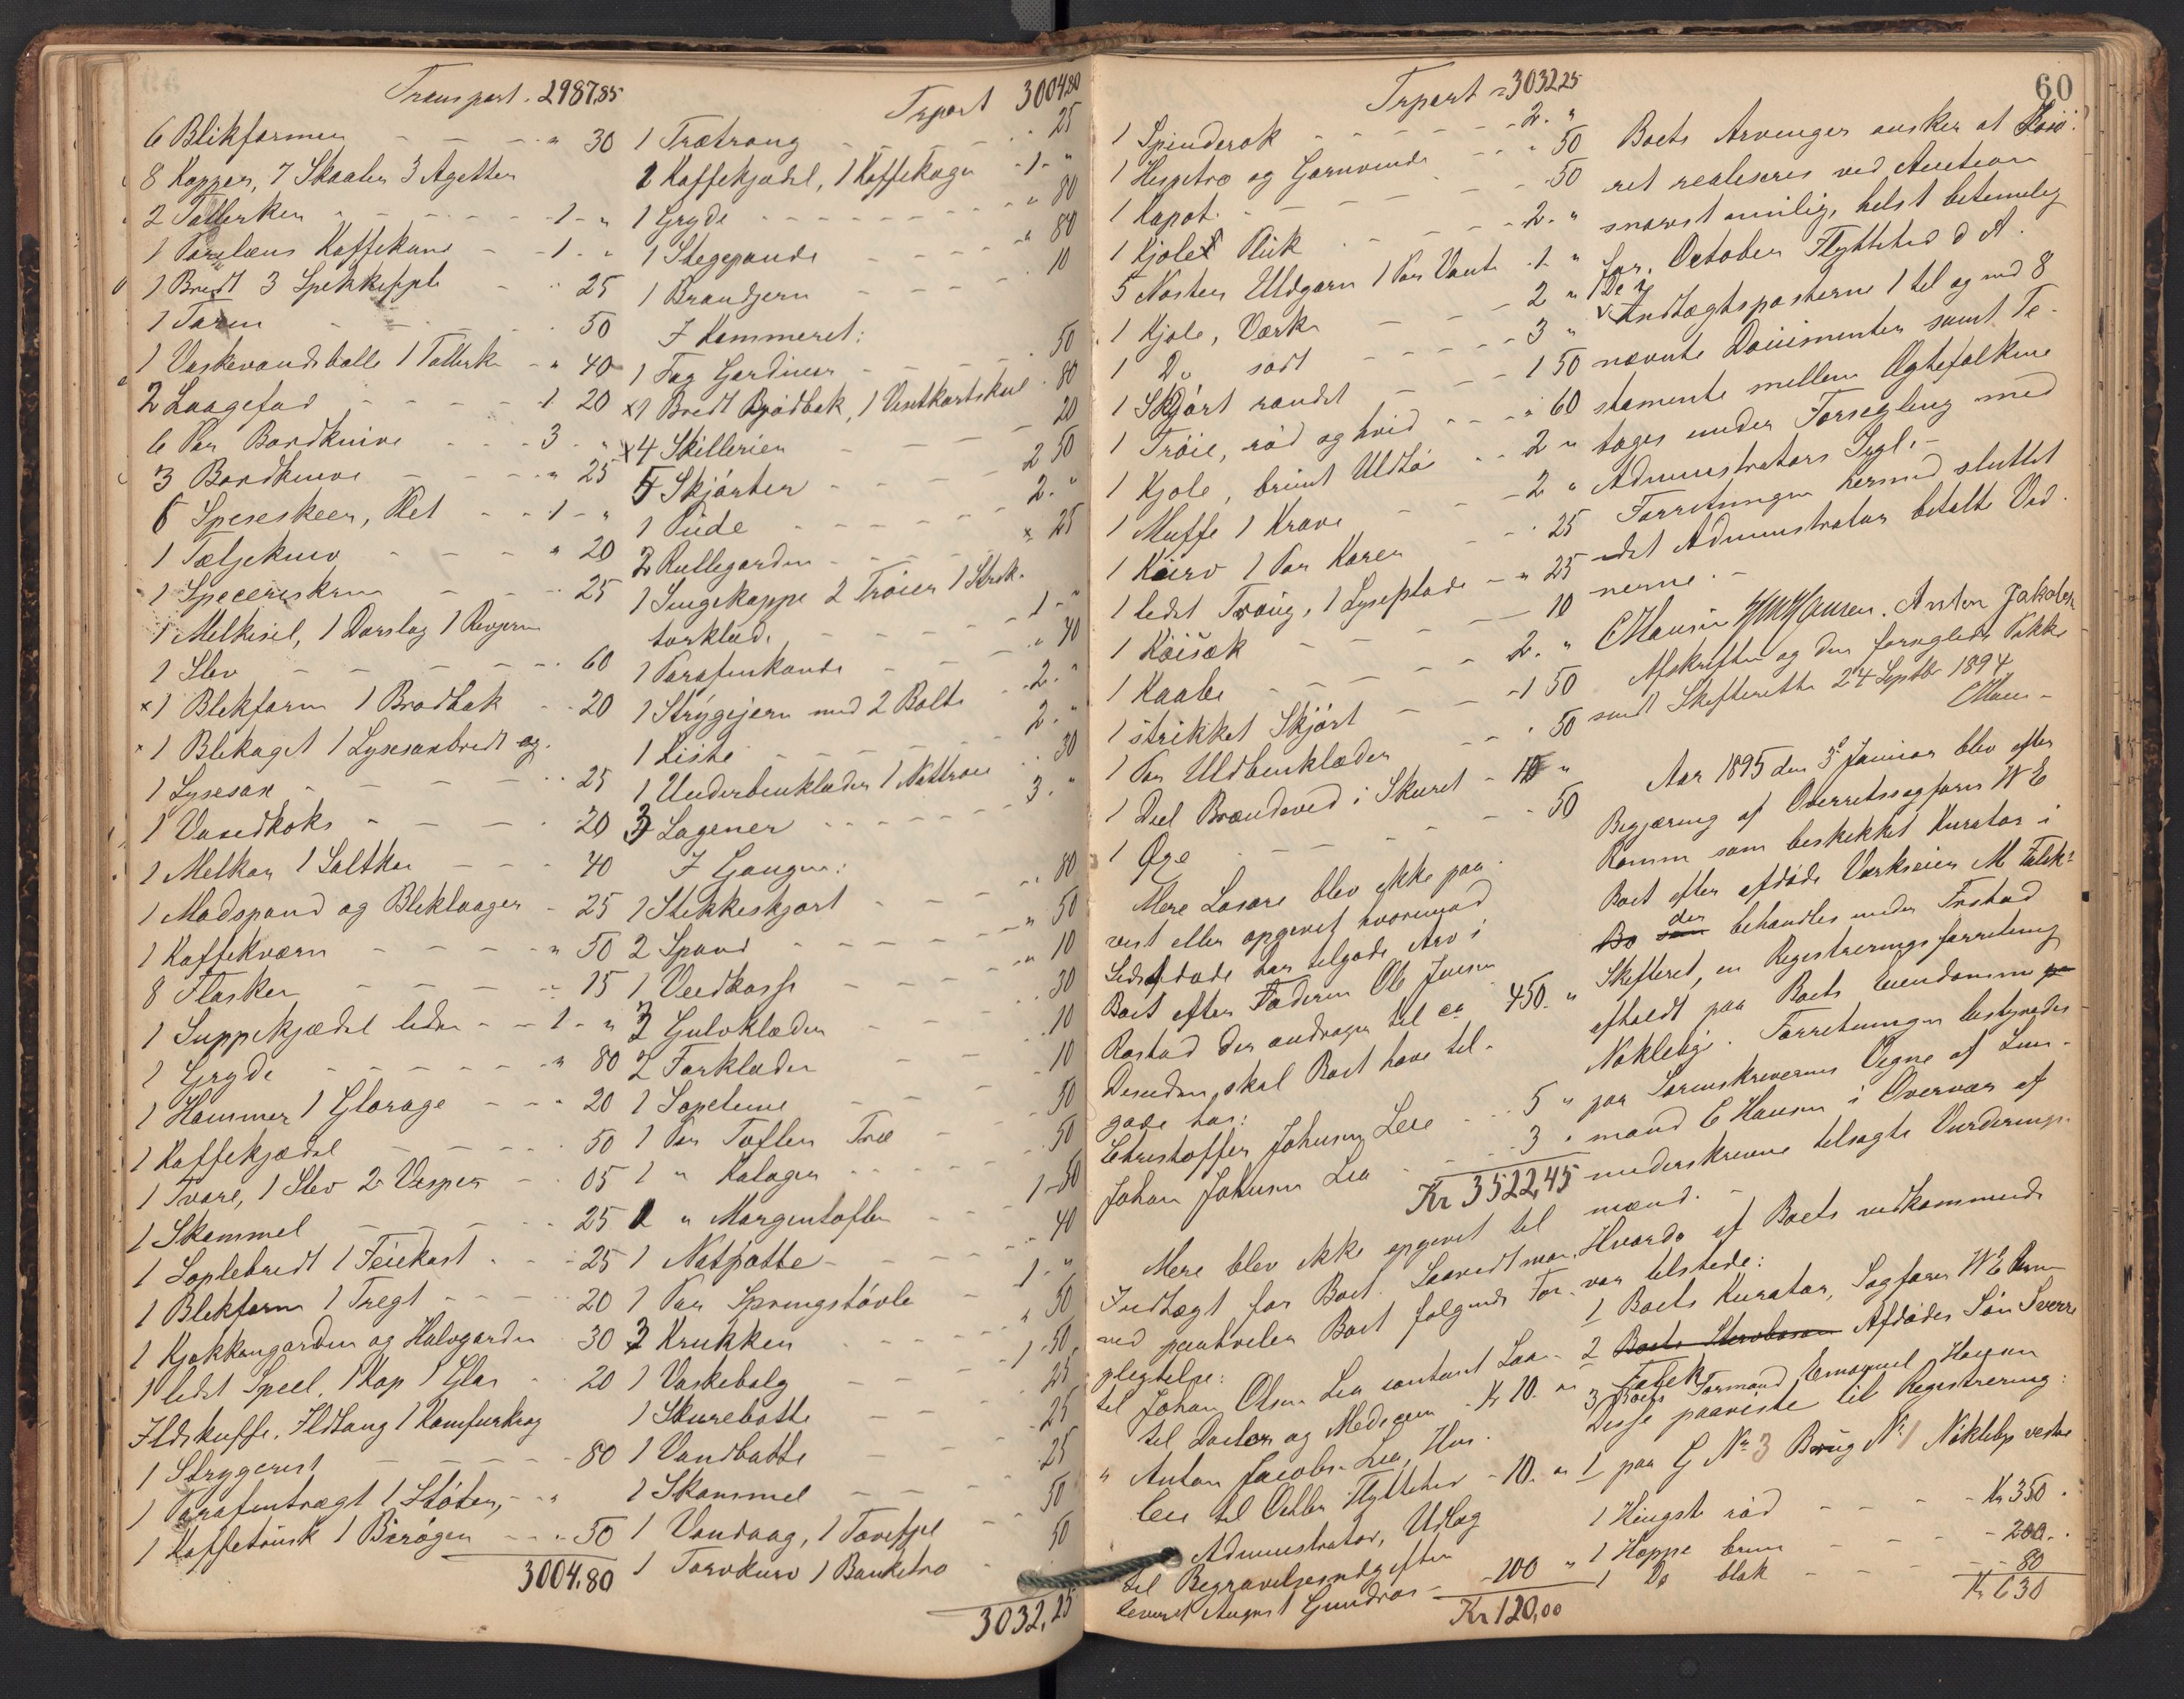 Transport. 2987,85
6 Blikformer - - - " 30
8 Kopper, 7 Skaaler 3 Agetter
2 Tallerken - - - - 1 - "
1 Porslæns Kaffekande - - 1 - "
1 Bredt 3 - - 25
1 - - - 50
1 Vaskevandsbolle 1 Tallerk - " 40
2 Laagefad - - - - 1 20
6 Par Bordknive - - - 3 "
3 Bordknive - - - - " 25
6 Speseskeer, Plet - - 1 - "
1 Tæljekniv - - - - " 20
1 - - - 25
1 Melkesil, 1 Dorslag 1 Revjern
1 Slev - - - - - 60
1 Blekform 1 Brødbak - - 20
1 Blikaget 1 Lysesaxbredt og
1 Lysesax - - - - 25
1 Vasedkoks - - - - 20
1 Melkar 1 Saltkar - - - 40
1 Madspand og Bliklaager - 25
1 Kaffekværn - - - - " 50
8 Flasker - - - - - 15
1 Suppekjædel - - 1 - "
1 Gryde - - - - - " 80
1 Hammer 1 Glorage - - - 20
1 Kaffekjædel - - - - 50
1 Tvare, 1 Slev 2 Visper - 05
1 Skammel - - - - 25
1 Soplebredt 1 Feiekost - - 25
1 Blekform 1 Tregt - - - 20
1 Kjøkkengardin og Halvgardin 30
1 ledet Speel, 1 Kop 1 Glas - 20
Ildskuffe, Ildtang 1 Komfurkrog
1 Strygerist - - - - 80
1 Parafintragt 1 Støter, - "
1 1 - - 50
3004.80
Trport 3004.80
1 Trætroug - - - - 25
1 Kaffekjædel, 1 Kaffekage - 1 - "
1 Gryde - - - - - " 80
1 Stegepande - - - " 80
1 Brandjern - - - - 10
I Kammeret:
1 Fag Gardiner - - - - 50
1 Bredt Brødbak, 1 80
4 Skillerier - - - - 20
5 Skjorter - - - - 2 50
1 Pude - - - - 2. "
2 Rullegardin - - - - 25
1 Sengekappe 2 Trøier 1
torklæde - - - - 1 - "
1 Parafinkande - - - - " 40
1 Strygejern med 2 Bolte - 2. "
1 Kiste - - - - 2. "
1 Underbenklæder 1 Nattrøie - 30
3 Lagener - - - - 3. "
I Gangen:
1 Stikkeskjort - - - - 80
2 Spand - - - - " 50
1 Vedkasse - - - - " 10
3 Gulvklæder - - - - 30
2 Forklæder - - - 10
1 - - - 10
1 Par Tøfler Træ - - - 50
1 " Kalosger - - - - 50
1 " Morgentøfler - - - 1 - 50
1 Natpotte - - - - 40
1 Par Springstøvle - - 1 - "
3 Krukken - - - - " 50
1 Vaskebalg - - - 1 - 50
1 Skurebøtte - - - 25
1 Vandbøtte - - - 25
1 Skammel - - - - 25
1 Vandaag, 1 - - 50
1 Torvkurv 1 50
3032,25
60
Trport = 3032,25
1 Spinderok - - - - - 2. "
1 Hespetræ og Garnvinde - - " 50
1 Kapot - - - - - 50
1 Kjole - - - - 2. "
5 Nøsten Uldgarn 1 Par Vante - 1 "
1 Kjole, Værk - - - 2 "
1 Do sort - - - - 3 "
1 Skjørt randet - - - 1 50
1 Trøie, rød og hvid - - - " 60
1 Kjole, brunt Uldtøi - - 2 "
1 Muffe 1 Krave - - - 2 "
1 Kurv 1 Par Karer - - " 25
1 ledet Troug, 1 - - " 25
1 Høisæk - - - - 10
1 Kaabe - - - - 2. "
1 strikket Skjørt - - - 1 50
1 Par Uldbenklæder - - " 50
1 Deel Brændeved i Skuret - 10 "
1 Øxe - - - - - 50
Mere Løsøre blev ikke paa-
vist eller opgivet hvorimod
afdøde har tilgode Arv i
Boet efter Faderen Ole Jensen
Rostad der andrager til ca 450. "
Desuden skal Boet have til-
gode hos:
Christoffer Johnsen Lere - - 5 "
Johan Johnsen Lea - - - 3 "
Kr 3522,45
Mere blev ikke opgivet til
Indtægt for Boet. Saavidt man
ved paahviler Boet følgende For-
pligtelse:
til Johan Olsen Lea contant Laa-
til Doctor og Medicin - Kr 10. "
" Anton Jacobs. Lea, Hus-
leie til Octbr Flyttetid - 10. "
Administrator, Udlæg
til Begravelsesudgifter
leveret August Gundros - - 100 "
Kr 120,00
Boets Arvinger ønsker at Løsø-
ret realiseres ved Auction
snarest mulig, helst betimelig
før October Flyttetid d A.
De i
Indtægtsposterne 1 til og med 8
nævnte Documenter samt Te-
stamente mellem Ægtefolkene
tages under Forsegling med
Administrators Segl. -
Forretningen hermed sluttet
idet Administrator betalte Vid-
nerne. -
C Hansen Anton Jakobsen
Afskriften og den forseglede Pakke
sendt Skifteretten 24 Septbr 1894
C Hans -
Aar 1895 den 3d Januar blev efter
Begjæring af Overretssagfører W E
Ramm som beskikket Kurator i
Boet efter afdøde Værkseier M Falck:
Bo som der behandles under Frstad
Skifteret, en Registreringsforretning
afholdt paa Boets Eiendomme
Nøkleby. Forretningen bestyredes
paa Sorenskriverens Vegne af Lens-
mand C Hansen i Overvær af
underskrevne tilsagte Vurderings-
mænd. -
Hvorda af Boets vedkommende
var tilstede:
1 Boets Kurator, Sagfører W E Ramm
2 Boets Afdødes Søn Sverre
Falck
3 Boets Formand Emanuel Hansen
Disse paaviste til Registrering:
1 paa G No 3 Brug No 1 Nøkleby vestre
1 Hingst rød - - - - Kr 350.
1 Hoppe brun - - - - 200. -
1 Do blak - - - - 80
Kr 630